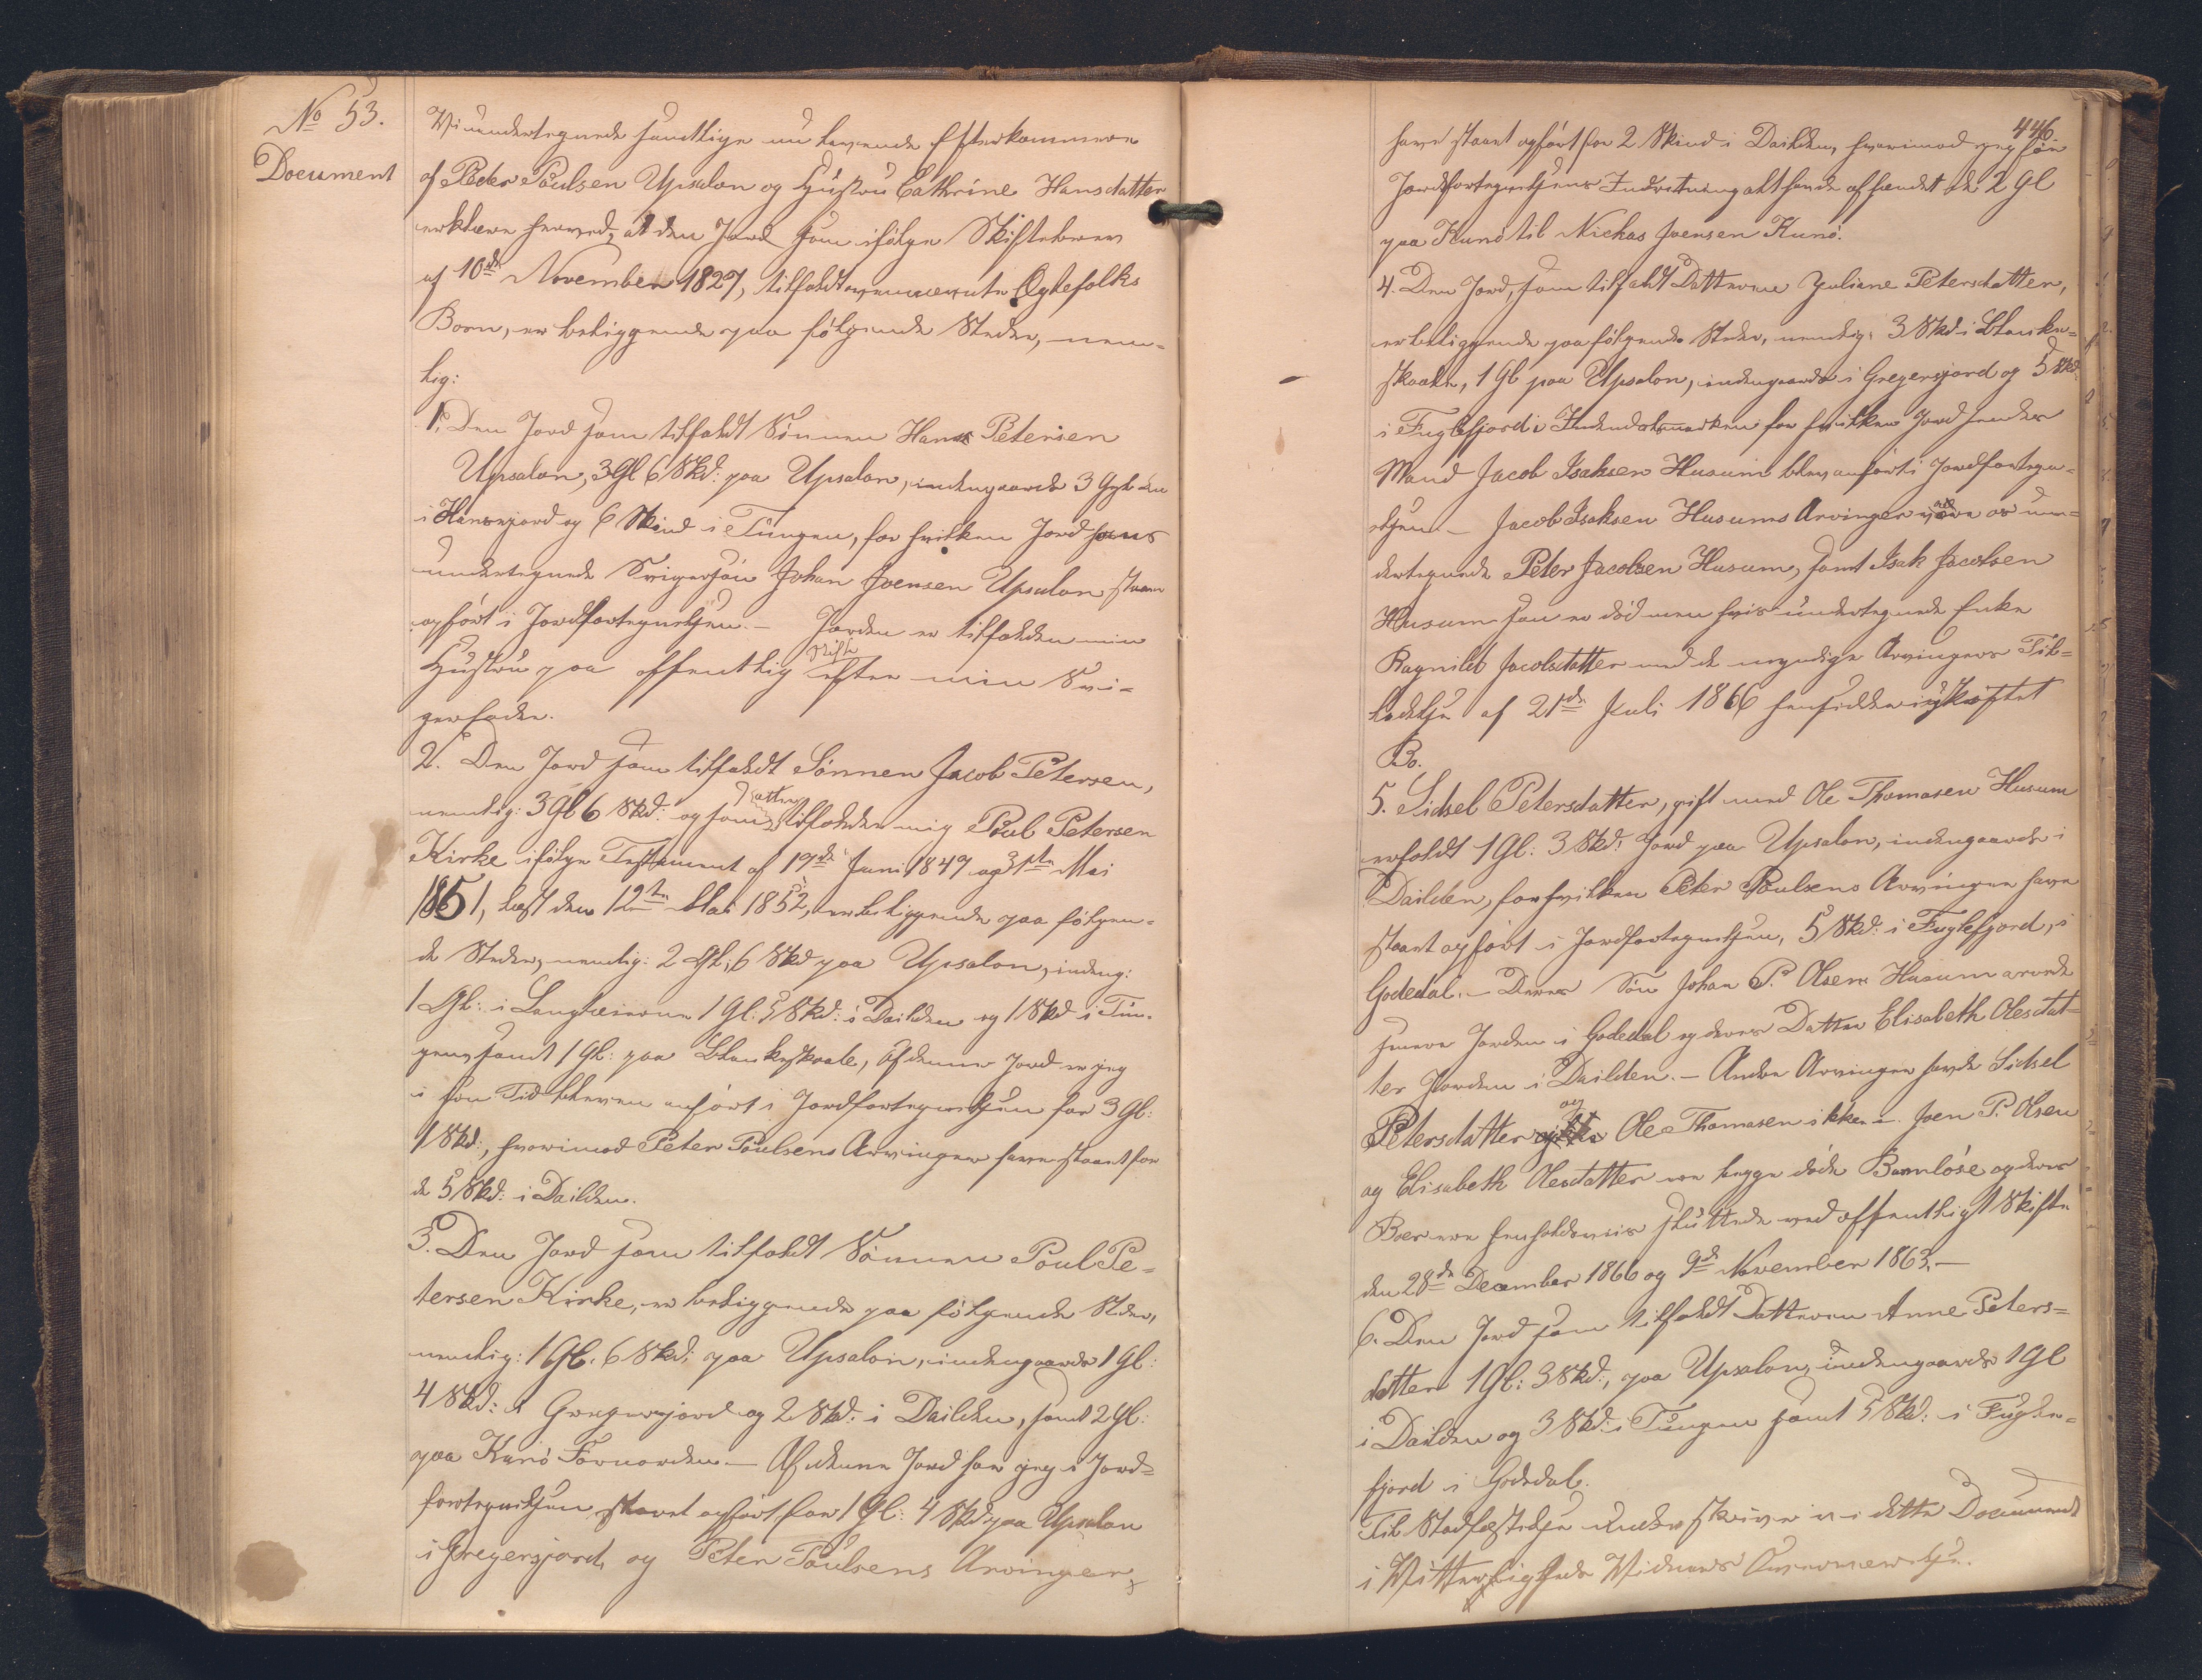 No 53.
Document
Vi undertegnede samtlige nu levende Efterkommere
af Peder Poulsen Upsalon og Hustru Cathrine Hansdatter
erklære herved, at den Jord som ifölge Skiftebrev
af 10de November 1827, tilfaldt ovennævnte Ægtefolks
Börn, er beliggende paa fölgende Steder, nem-
lig:
1. Den Jord som tilfaldt Sönnen Hans Petersen
Upsalon, 3 Gl 6 Skd: paa Upsalon, indengaards 3 Gyl
i Hansejord og 6 Skind i Tungen, for hvilken Jord hans
undertegnede Svigersön Johan Joensen Upsalon staar
opfört i Jordfortegnelsen. – Jorden er tilfalden min
Hustru paa offentlig Skifte efter min Svi-
gerfader.
2. Den Jord som tilfaldt Sönnen Jacob Petersen,
nemlig: 3 Gl 6 Skd: og som atter tilfalden mig Poul Petersen
Kirke ifölge Testament af 19de Juni 1847 og 31te Mai
1851, læst den 12te Mai 1852, er beliggende paa fölgen-
de Steder, nemlig: 2 Gl; 6 Skd paa Upsalon, indeng:
1 Gl: i 1 Gl: 5 Skd: i Dailden og 1 Skd i Tun-
gen, samt 1 Gl: paa Blankeskaale, af denne Jord er jeg
i sin Tid bleven anfört i Jordfortegnelsen for 3 Gl:
1 Skd:, hvorimod Peter Poulsens Arvinger have staaet for
de 5 Skd: i Dailden.
3. Den Jord som tilfaldt Sönnen Poul Pe-
tersen Kirke, er beliggende paa fölgende Steder,
nemlig: 1 Gl. 6 Skd: paa Upsalon, indengaards 1 Gl:
4 Skd: i Gregersjord og 2 Skd: i Dailden, samt 2 Gl:
paa Kunö – Af denne Jord har jeg i Jord-
fortegnelsen staaet opfört for 1 Gl: 4 Skd paa Upsalon
i Gregersjord, og Peter Poulsens Arvinger
446.
have staaet opfört for 2 Skind i Dailden, hvorimod jeg för
Jordfortegnelsens Indretning alt havde afhændet de 2 Gl
paa Kunö til Nichas Joensen Kunö.
4. Den Jord, som tilfaldt Datteren Juliane Petersdatter,
er beliggende paa fölgende Steder, nemlig: 3 Skd i Blanke-
skaale, 1 Gl paa Upsalon, indengaards i Gregersjord og 5 Skd:
i Fuglefjord i for hvilken Jord hendes
Mand Jacob Isaksen Husum blev anfört i Jordfortegn-
elsen – Jacob Isaksen Husums Arvinger ere un-
dertegnede Peter Jacobsen Husum, samt Isak Jacobsen
Husum som er död men hvis undertegnede Enke
Ragnild Jacobsdatter med de myndige Arvingers Til-
ladelse af 21de Juli 1866 hensidder i uskiftet
Bo.
5. Sidsel Petersdatter, gift med Ole Thomasen Husum
erholdt 1 Gl: 3 Skd: Jord paa Upsalon, indengaards i
Dailden, for hvilken Peter Poulsens Arvinger have
staaet opfört i Jordfortegnelsen, 5 Skd: i Fuglefjord, i
Godedal. – Deres Sön Johan P. Olsen Husum arvede
Jorden i Godedal og deres Datter Elisabeth Olesdat-
ter Jorden i Dailden. – Andre Arvinger havde Sidsel
Petersdatter og Ole Thomasen ikke. – Joen P. Olsen
og Elisabeth Olesdatter ere begge döde Barnlöse og deres
Boer ere henholdsvis sluttede ved offentligt Skifte
den 28de December 1866 og 9de November 1863. –
6. Den Jord som tilfaldt Datteren Anne Peters-
datter 1 Gl: 3 Skd:, paa Upsalon, indengaards 1 Gl
i Dailden og 3 Skd: i Tungen samt 5 Skd: i Fugle-
fjord i Godedal.
Til Stadfæstelse underskrive vi dette Document
i Vitterligheds Vidners Overværelse.